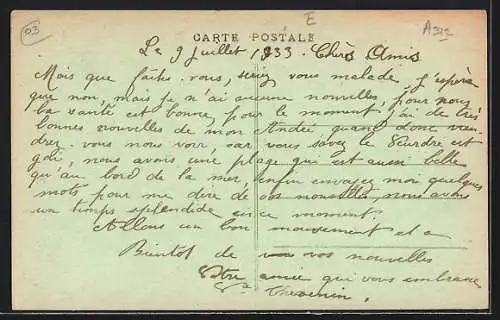 03
E
A322
CARTE POSTALE
Le 9 Juillet 1933. Chers Amis
Mais que faites-vous, seriez vous malade j'espère
que non, mais je n'ai aucune nouvelles, pour nous
la santé est bonne pour le moment, j'ai de très
bonnes nouvelles de mon André, quand donc vien-
drez-vous nous voir, car vous savez le Veurdre est
joli, nous avons une plage qui est aussi belle
qu'au bord de la mer, enfin envoyez moi quelques
mots pour me dire de vos nouvelles, nous avons
un temps splendide en ce moment
Allons un bon mouvement et a
Bientot de vos nouvelles
Votre amie qui vous embrasse
Thevenin.